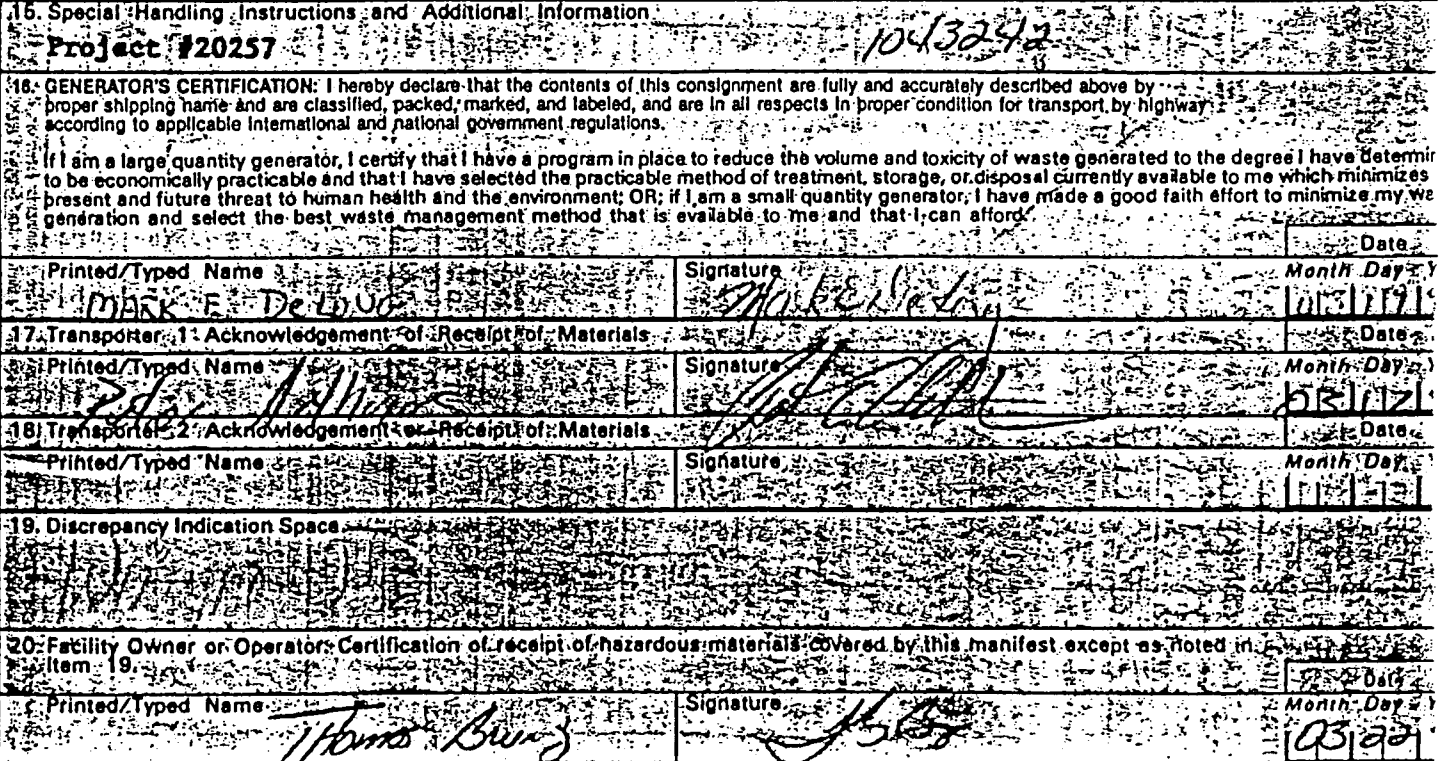 15. Special Handling Instructions and Additional Information
Project #20257 1043242
16. GENERATOR'S CERTIFICATION: I hereby declare that the contents of this consignment are fully and accurately described above by
proper shipping name and are classified, packed, marked, and labeled, and are in all respects in proper condition for transport by highway
according to applicable international and national government regulations.
If I am a large quantity generator, I certify that I have a program in place to reduce the volume and toxicity of waste generated to the degree I have determin
to be economically practicable and that I have selected the practicable method of treatment, storage, or disposal currently available to me which minimizes
present and future threat to human health and the environment; OR; if I am a small quantity generator, I have made a good faith effort to minimize my wa
generation and select the best waste management method that is available to me and that I can afford.
Date
Printed/Typed Name Signature Month Day Y
MARK E.
17. Transporter 1 Acknowledgement of Receipt of Materials Date
Printed/Typed Name Signature Month Day
18. Transporter 2 Acknowledgement or Receipt of Materials Date
Printed/Typed Name Signature Month Day
19. Discrepancy Indication Space
20. Facility Owner or Operator: Certification of receipt of hazardous materials covered by this manifest except as noted in
Item 19. Date
Printed/Typed Name Signature Month Day Y
Thomas 03 22